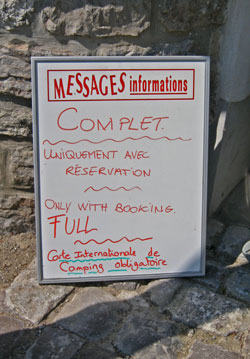 MESSAGES informations
COMPLET.
UNIQUEMENT AVEC
RÉSERVATION
ONLY WITH BOOKING.
FULL
Carte Internationale de
Camping obligatoire